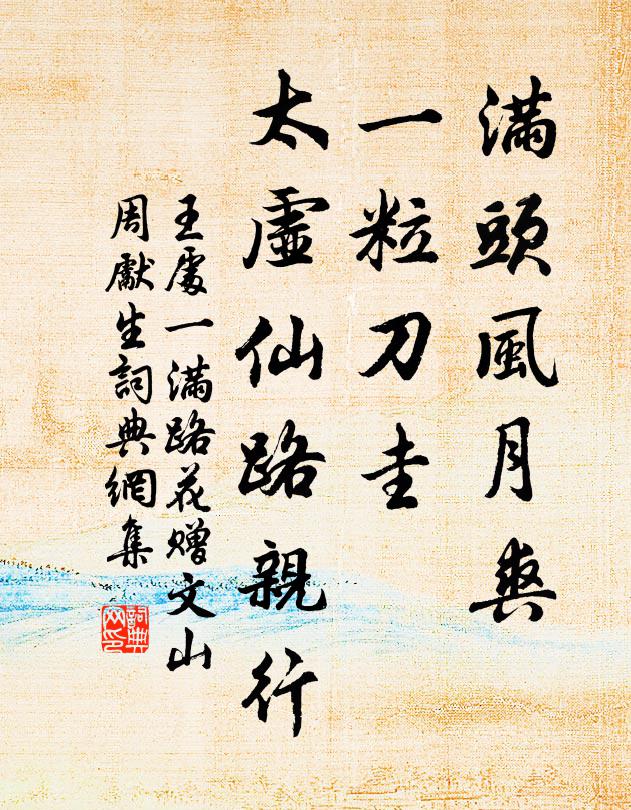 滿頭風月爽
一粒刀圭
太虛仙路親行
王處一滿路花贈文山
周獻生詞典網集
詞典网印